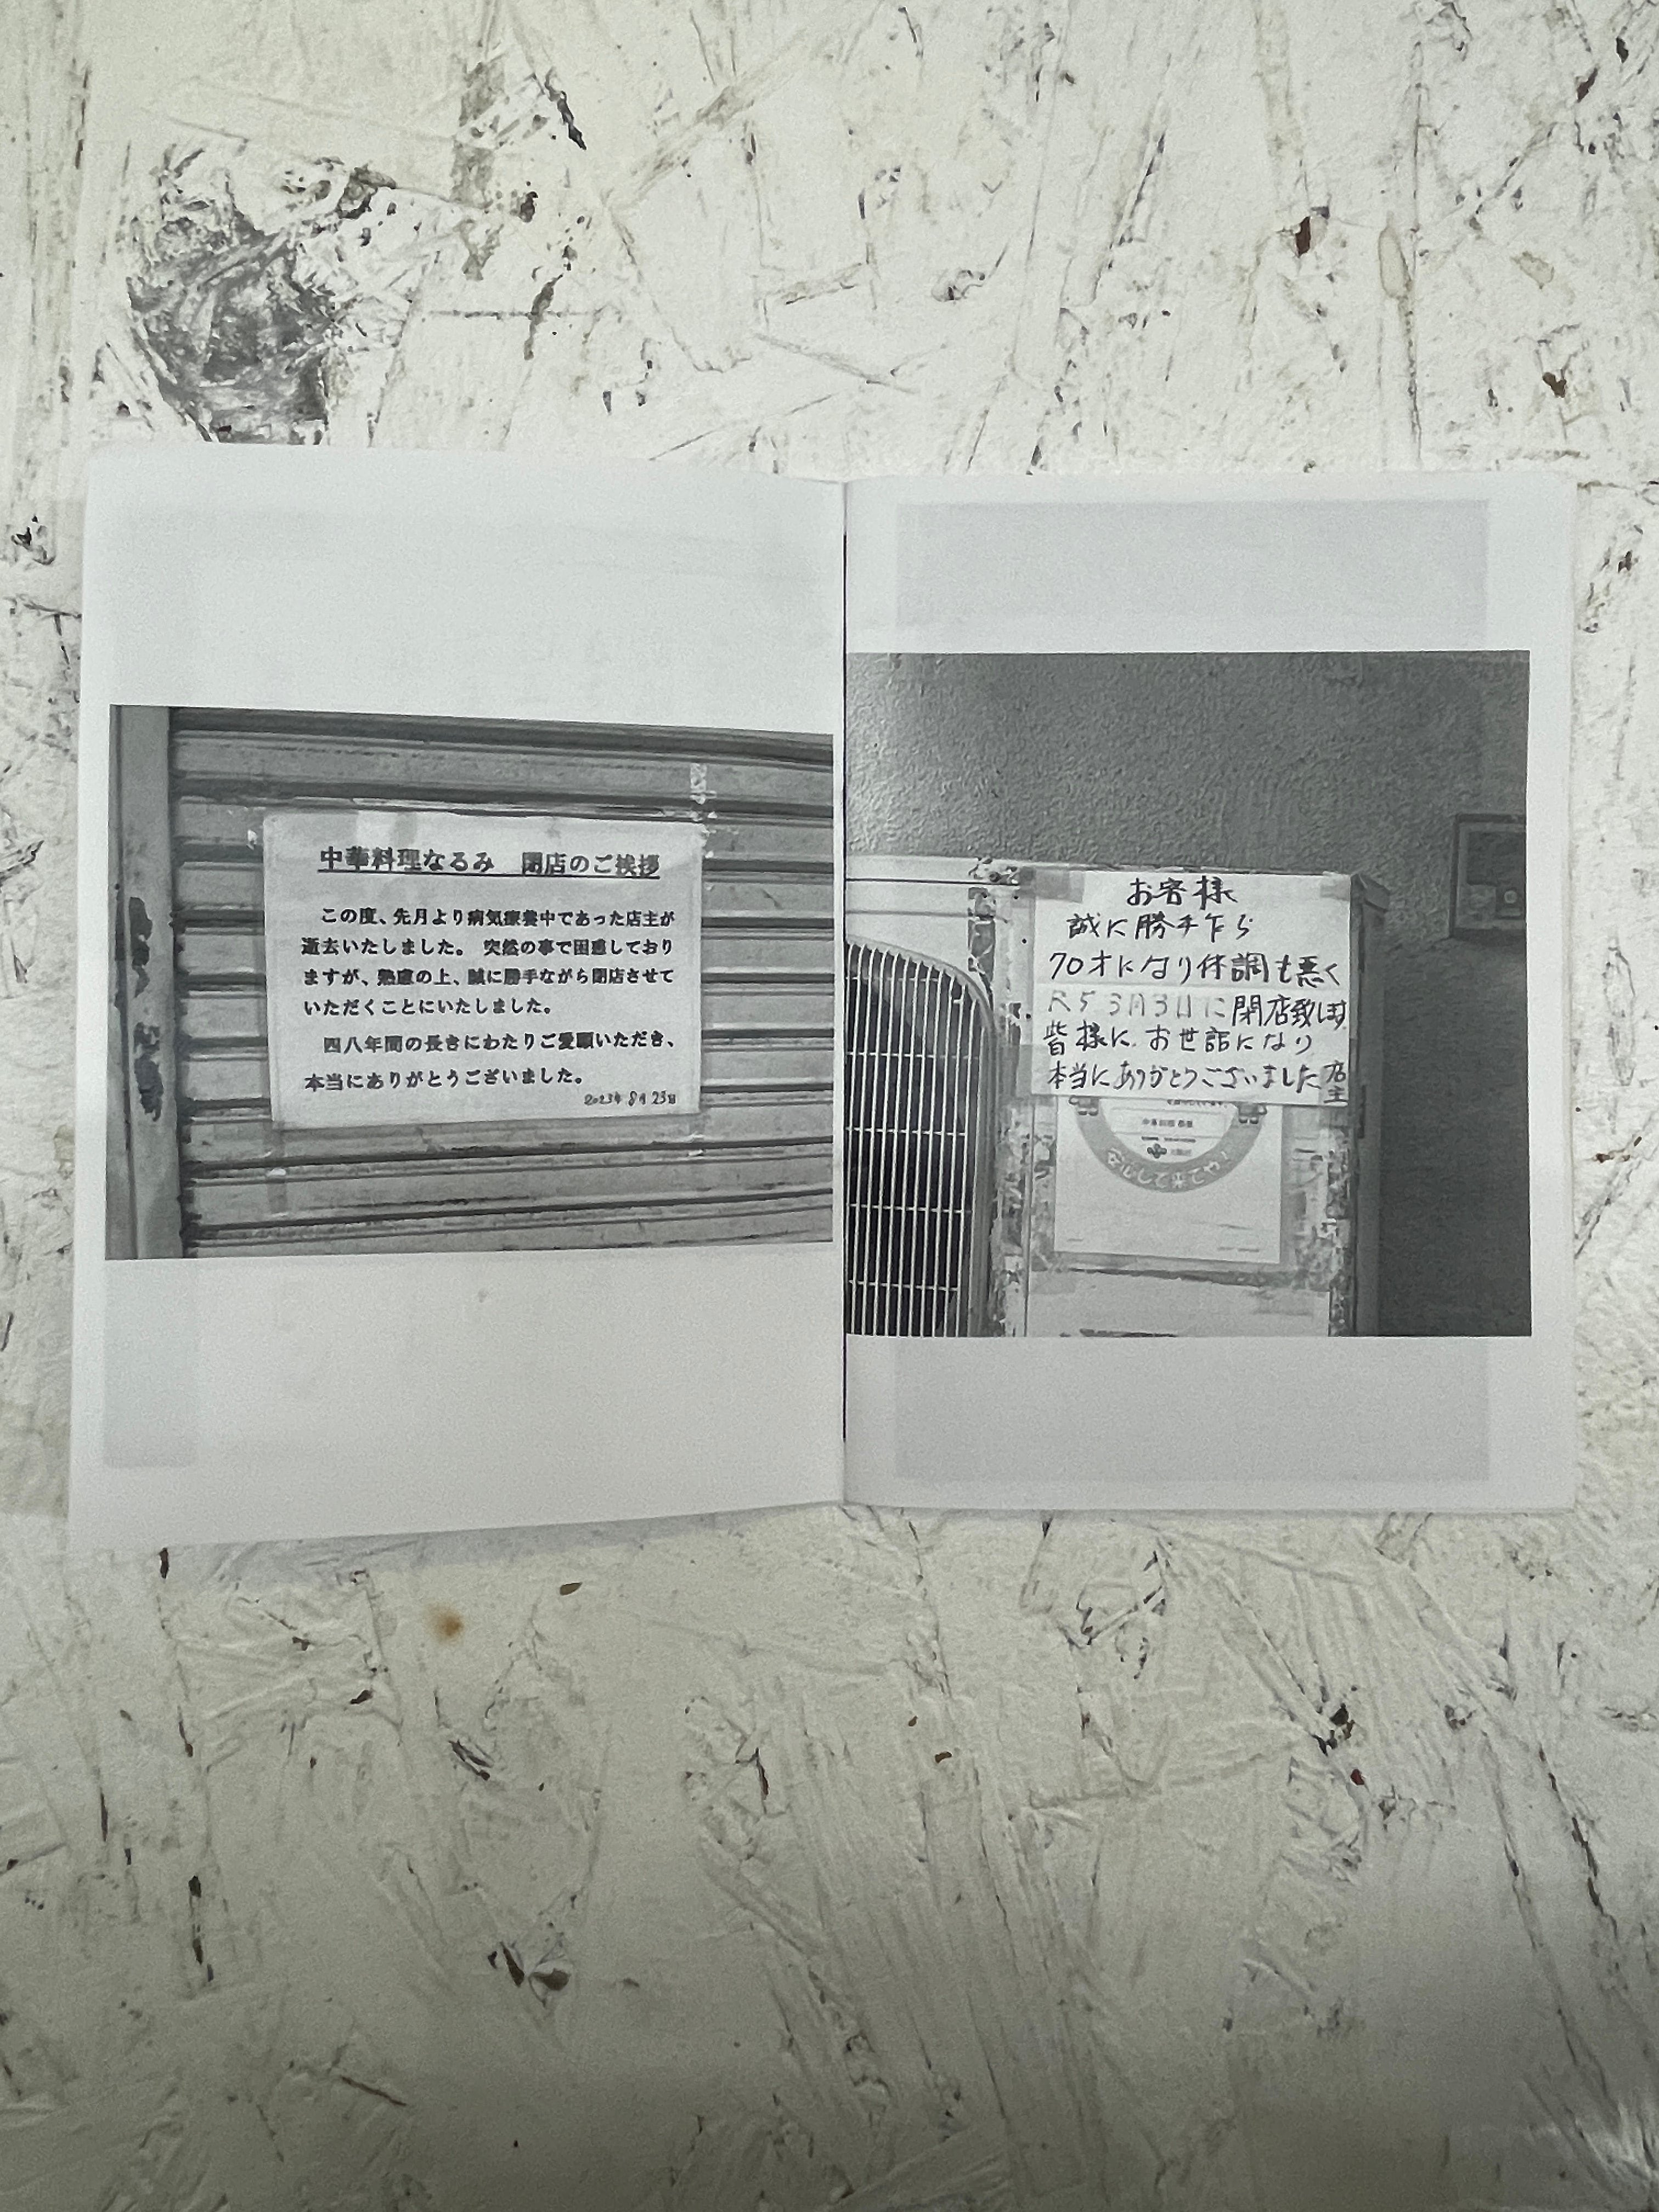 中華料理なるみ　閉店のご挨拶
この度、先月より病気療養中であった店主が
逝去いたしました。 突然の事で困惑しており
ますが、熟慮の上、誠に勝手ながら閉店させて
いただくことにいたしました。
四八年間の長きにわたりご愛顧いただき、
本当にありがとうございました。
2023年8月23日
お客様
誠に勝手乍ら
70才になり体調も悪く
R5 3月3日に閉店致します
皆様にお世話になり
本当にありがとうございました 店主
安心して来てや!